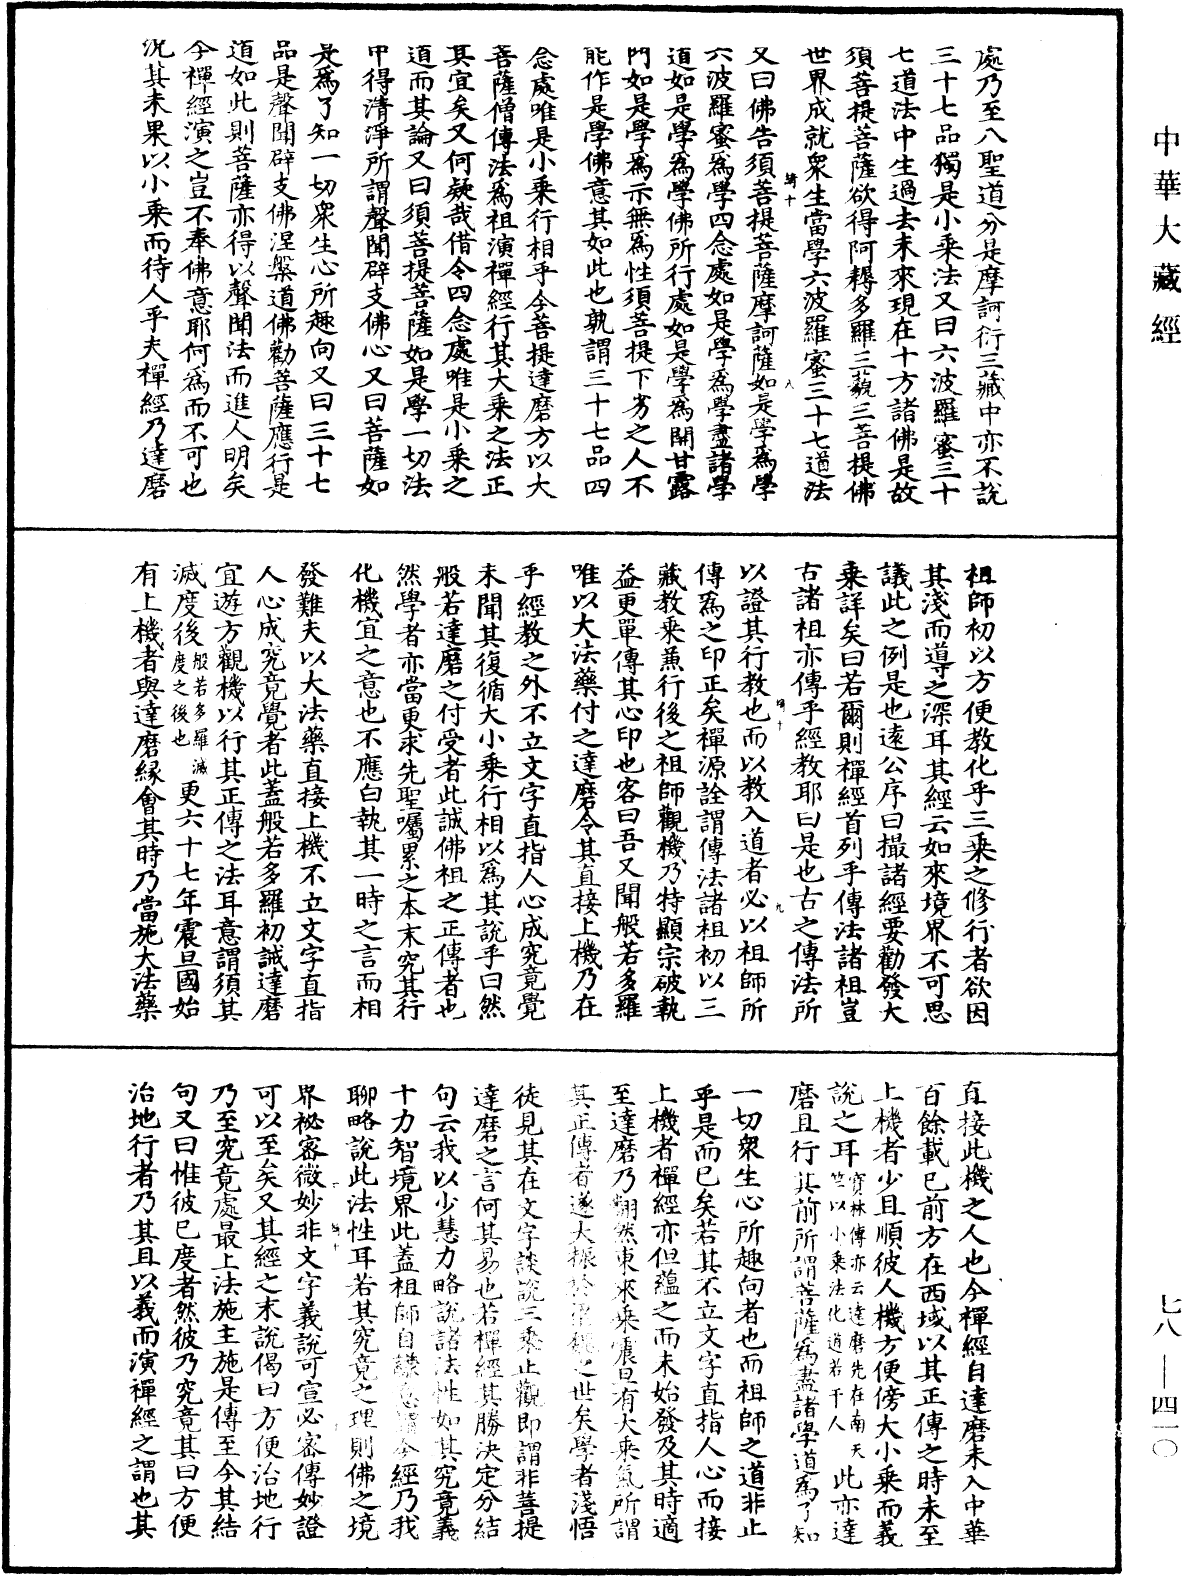 中華大藏經
處乃至八聖道分是摩訶衍三藏中亦不說
三十七品獨是小乘法又曰六波羅蜜三十
七道法中生過去未來現在十方諸佛是故
須菩提菩薩欲得阿耨多羅三藐三菩提佛
世界成就衆生當學六波羅蜜三十七道法
又曰佛告須菩提菩薩摩訶薩如是學為學
六波羅蜜為學四念處如是學為學盡諸學
道如是學為學佛所行處如是學為開甘露
門如是學為示無為性須菩提下劣之人不
能作是學佛意其如此也孰謂三十七品四
念處唯是小乘行相乎今菩提達磨方以大
菩薩僧傳法為祖演禪經行其大乘之法正
其宜矣又何疑哉借令四念處唯是小乘之
道而其論又曰須菩提菩薩如是學一切法
中得清淨所謂聲聞辟支佛心又曰菩薩如
是為了知一切衆生心所趣向又曰三十七
品是聲聞辟支佛涅槃道佛勸菩薩應行是
道如此則菩薩亦得以聲聞法而進人明矣
今禪經演之豈不奉佛意耶何為而不可也
況其未果以小乘而待人乎夫禪經乃達磨
祖師初以方便教化乎三乘之修行者欲因
其淺而導之深耳其經云如來境界不可思
議此之例是也遠公序曰撮諸經要勸發大
乘詳矣曰若爾則禪經首列乎傳法諸祖豈
古諸祖亦傳乎經教耶曰是也古之傳法所
以證其行教也而以教入道者必以祖師所
傳為之印正矣禪源詮謂傳法諸祖初以三
藏教乘兼行後之祖師觀機乃特顯宗破執
益更單傳其心印也客曰吾又聞般若多羅
唯以大法藥付之達磨令其直接上機乃在
乎經教之外不立文字直指人心成究竟覺
未聞其復循大小乘行相以為其說乎曰然
般若達磨之付受者此誠佛祖之正傳者也
然學者亦當更求先聖囑累之本末究其行
化機宜之意也不應白執其一時之言而相
發難夫以大法藥直接上機不立文字直指
人心成究竟覺者此蓋般若多羅初誡達磨
宜遊方觀機以行其正傳之法耳意謂須其
滅度後般若多羅滅度之後也更六十七年震旦國始
有上機者與達磨緣會其時乃當施大法藥
直接此機之人也今禪經自達磨未入中華
百餘載已前方在西域以其正傳之時未至
上機者少且順彼人機方便傍大小乘而義
說之耳寶林傳亦云達磨先在南天竺以小乘法化道若干人此亦達
磨且行其前所謂菩薩為盡諸學道為了知
一切衆生心所趣向者也而祖師之道非止
乎是而已矣若其不立文字直指人心而接
上機者禪經亦但蘊之而未始發及其時適
至達磨乃翻然東來乘震旦有大乘氣所謂
其正傳者遂大振於梁魏之世矣學者淺悟
徒見其在文字談說三乘止觀即謂非菩提
達磨之言何其易也若禪經其勝決定分結
句云我以少慧力略說諸法性如其究竟義
十力智境界此蓋祖師自謙意謂今經乃我
聊略說此法性耳若其究竟之理則佛之境
界祕密微妙非文字義說可宣必密傳妙證
可以至矣又其經之末說偈曰方便治地行
乃至究竟處最上法施主施是傳至今其結
句又曰惟彼已度者然彼乃究竟其曰方便
治地行者乃其且以義而演禪經之謂也其
七八—四一〇